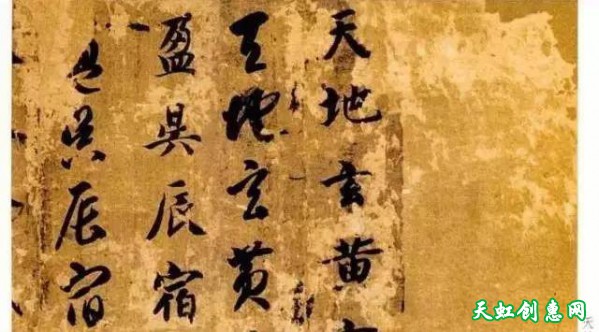 天地玄黄
天地玄黄
盈昃辰宿
盈昃辰宿
天虹创惠网
天